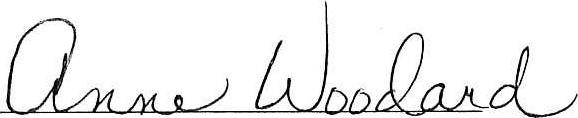 Anne Woodard